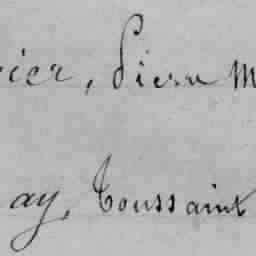 ier, Pierre M
ay, Toussaint